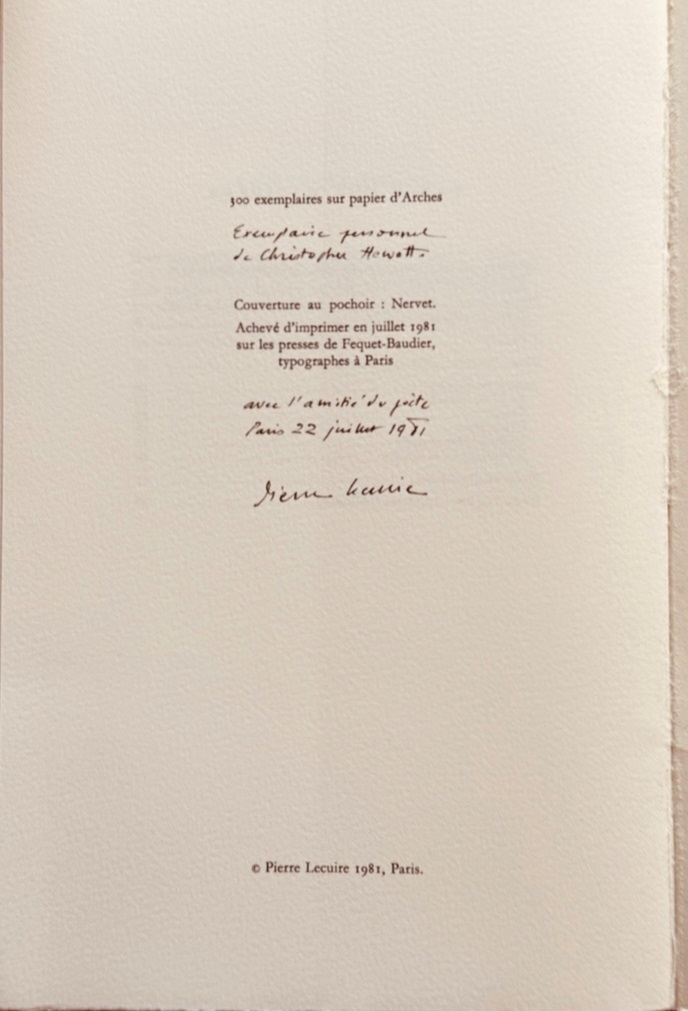 300 exemplaires sur papier d'Arches
Exemplaire personnel
de Christopher Hewett.
Couverture au pochoir : Nervet.
Achevé d'imprimer en juillet 1981
sur les presses de Fequet-Baudier,
typographes à Paris
avec l'amitié du poète
Paris 22 juillet 1981
Pierre Lecuire
© Pierre Lecuire 1981, Paris.